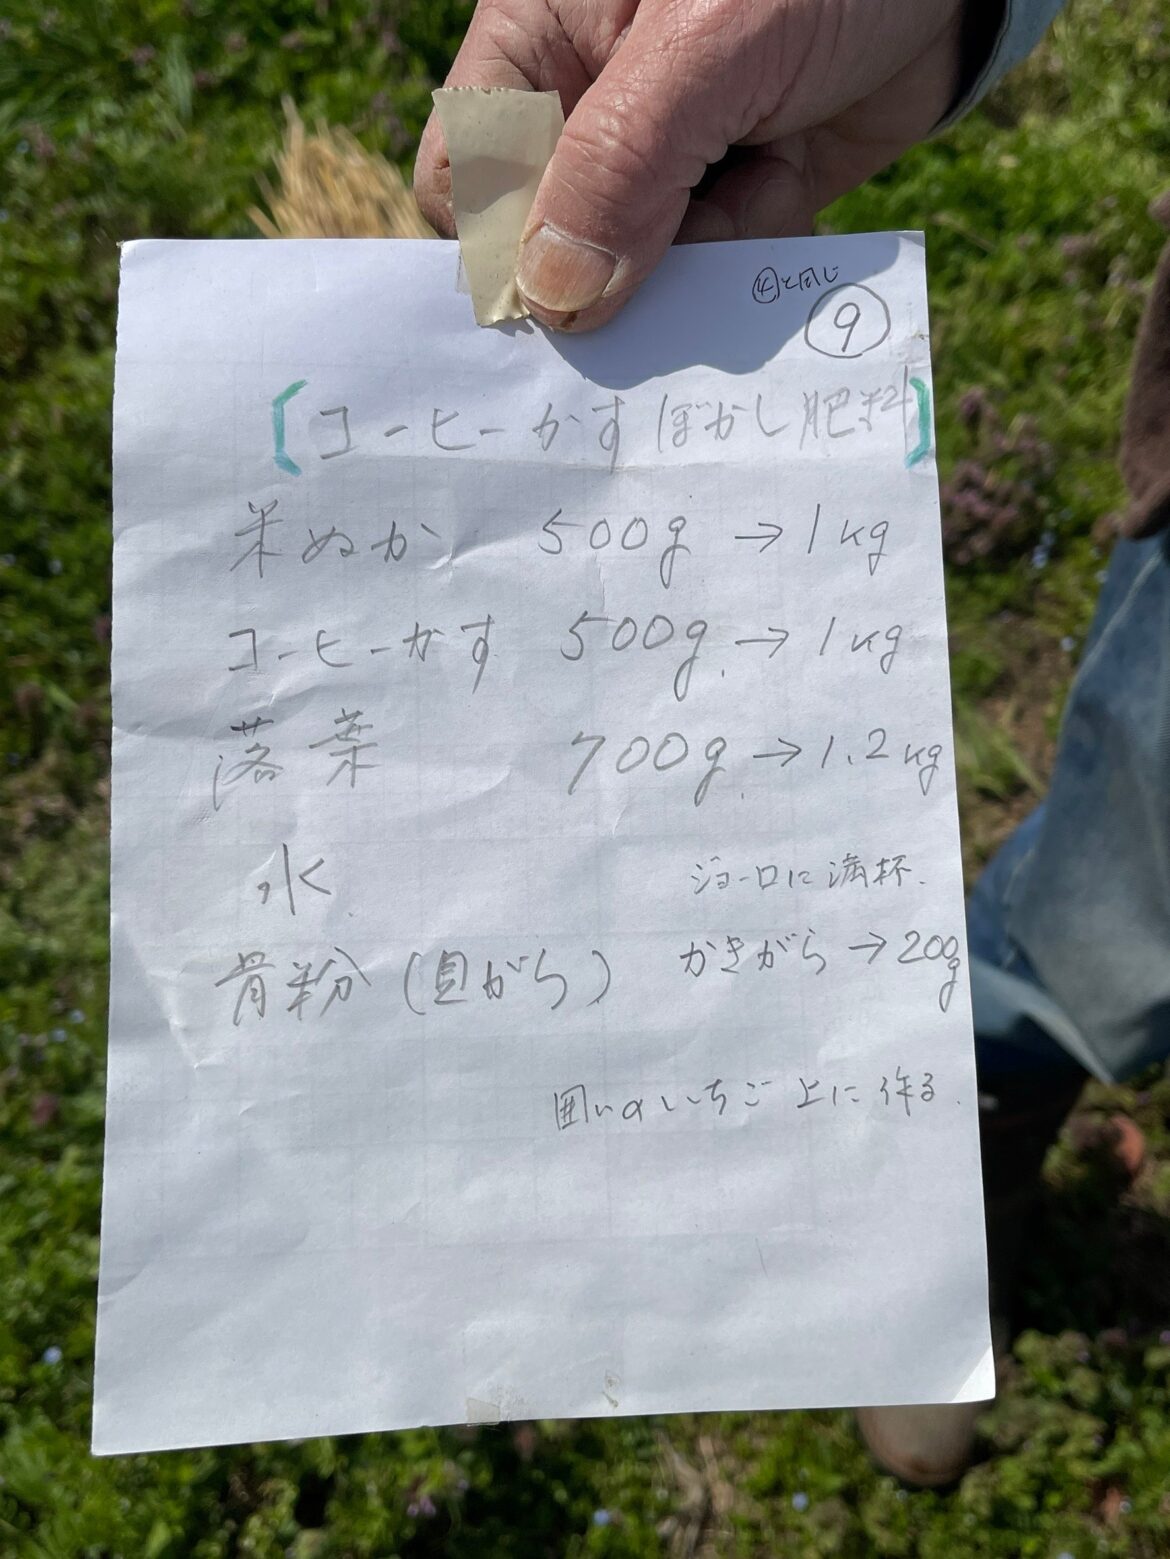 ④と同じ
⑨
[コーヒーかすぼかし肥料]
米ぬか 500g → 1kg
コーヒーかす 500g → 1kg
落葉 700g → 1.2kg
水 ジョーロに満杯.
骨粉(貝がら) かきがら → 200g
囲いのいちご 上に作る.